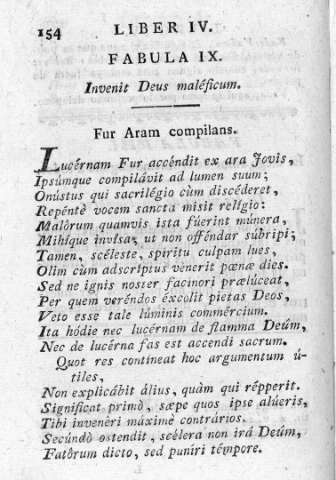 154 LIBER IV.
FABULA IX.
Invenit Deus maléficum.
Fur Aram compilans.
Lucérnam Fur accéndit ex ara Jovis,
Ipsúmque compilávit ad lumen suum;
Onústus qui sacrilégio cùm discéderet,
Repéntè vocem sancta misit relígio:
Malòrum quamvis ista fúerint múnera,
Mihíque invísa, ut non offéndar súbripi;
Tamen, scéleste, spíritu culpam lues,
Olim cùm adscriptus vénerit pœnæ dies.
Sed ne ignis noster facínori præluceat,
Per quem veréndos éxcolit pietas Deos,
Veto esse tale lúminis commércium.
Ita hódie nec lucérnam de flamma Deúm,
Nec de lucérna fas est accendi sacrum.
Quot res contineat hoc argumentum ú-
tiles,
Non explicábit álius, quàm qui répperit.
Significat primò, sæpe quos ipse alúeris,
Tibi inveneri máximè contrários.
Secúndò ostendit, scélera non irá Deúm,
Fatòrum dicto, sed puníri témpore.